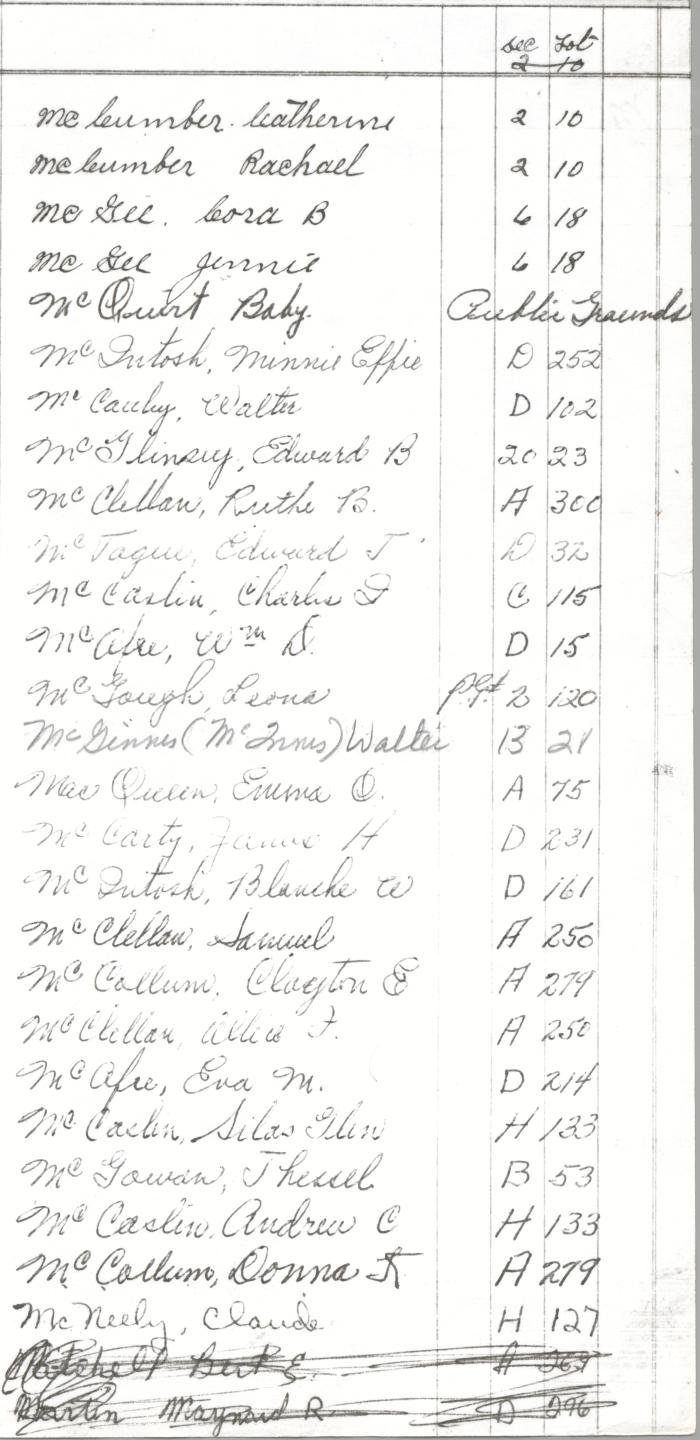 Sec Lot
2 10
McCumber. Catherine 2 10
McCumber Rachael 2 10
McGee. Cora B 6 18
McGee Jennie 6 18
McQuirt Baby. Public Grounds
McIntosh, Minnie Effie D 252
McCauly, Walter D 102
McGlinsey, Edward B 20 23
McClellan, Ruthe B. A 300
McTague, Edward J D 32
McCaslin, Charles F C 115
McAfee, Wm D. D 15
McGough, Leona 2 120
McGinnes (McInnes) Walter 13 21
MacQueen, Emma O. A 75
McCarty, James H D 231
McIntosh, Blanche W D 161
McClellan, Samuel A 250
McCollum, Clayton E A 279
McClellan, Allie F. A 250
McAfee, Eva M. D 214
McCaslin, Silas Glen H 133
McGowan, Thessel B 53
McCaslin, Andrew C H 133
McCollum, Donna K A 279
McNeely, Claude H 127
Mitchell Bert E. A 269
Martin Maynard R D 296